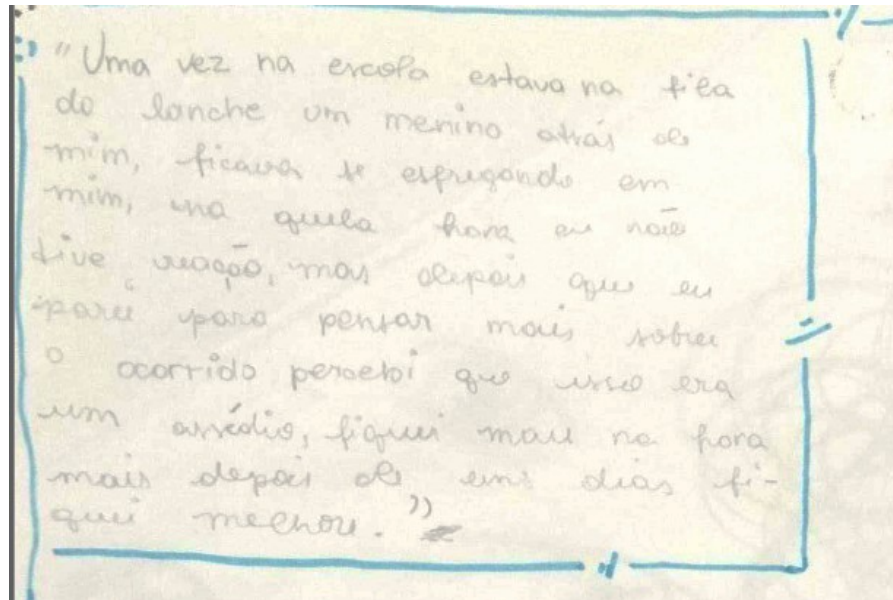 "Uma vez na escola estava na fila
do lanche um menino atrás de
mim, ficava se esfregando em
mim, na quela hora eu não
tive reação, mas depois que eu
parei para pensar mais sobre
o ocorrido percebi que isso era
um assédio, fiquei mau na hora
mais depois de uns dias fi-
quei melhor."